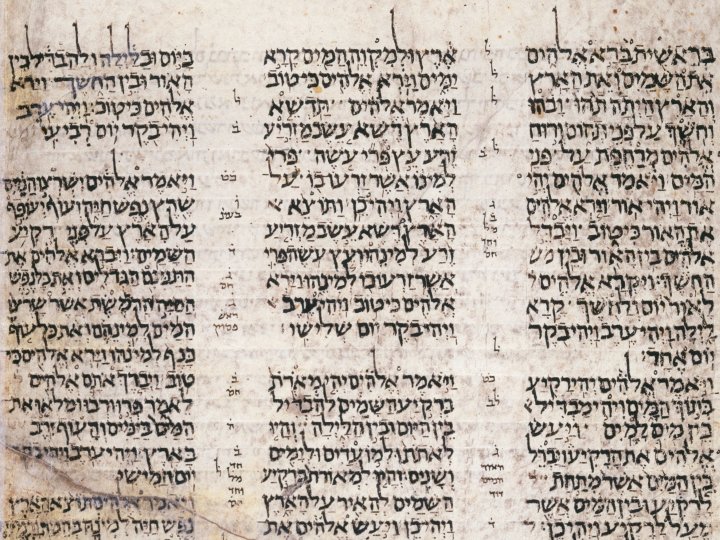 בראשית ברא אלהים
את השמים ואת הארץ
והארץ היתה תהו ובהו
וחשך על פני תהום ורוח
אלהים מרחפת על פני
המים ויאמר אלהים יהי
אור ויהי אור וירא אלהים
את האור כי טוב ויבדל
אלהים בין האור ובין
החשך ויקרא אלהים
לאור יום ולחשך קרא
לילה ויהי ערב ויהי בקר
יום אחד׃
ויאמר אלהים יהי רקיע
בתוך המים ויהי מבדיל
בין מים למים ויעש
אלהים את הרקיע ויבדל
בין המים אשר מתחת
לרקיע ובין המים אשר
מעל לרקיע ויהי כן
ארץ ולמקוה המים קרא
ימים וירא אלהים כי טוב
ויאמר אלהים תדשא
הארץ דשא עשב מזריע
זרע עץ פרי עשה פרי
למינו אשר זרעו בו על
הארץ ויהי כן ותוצא
הארץ דשא עשב מזריע
זרע למינהו ועץ עשה פרי
אשר זרעו בו למינהו וירא
אלהים כי טוב ויהי ערב
ויהי בקר יום שלישי
ויאמר אלהים יהי מארת
ברקיע השמים להבדיל
בין היום ובין הלילה והיו
לאתת ולמועדים ולימים
ושנים והיו למאורת ברקיע
השמים להאיר על הארץ
ויהי כן ויעש אלהים את
ביום ובלילה ולהבדיל בין
האור ובין החשך וירא
אלהים כי טוב ויהי ערב
ויהי בקר יום רביעי
ויאמר אלהים ישרצו המים
שרץ נפש חיה ועוף יעופף
על הארץ על פני רקיע
השמים ויברא אלהים את
התנינם הגדלים ואת כל נפש
החיה הרמשת אשר שרצו
המים למינהם ואת כל עוף
כנף למינהו וירא אלהים כי
טוב ויברך אתם אלהים
לאמר פרו ורבו ומלאו את
המים בימים והעוף ירב
בארץ ויהי ערב ויהי בקר
יום חמישי
ויאמר אלהים תוצא הארץ
נפש חיה למינה בהמה